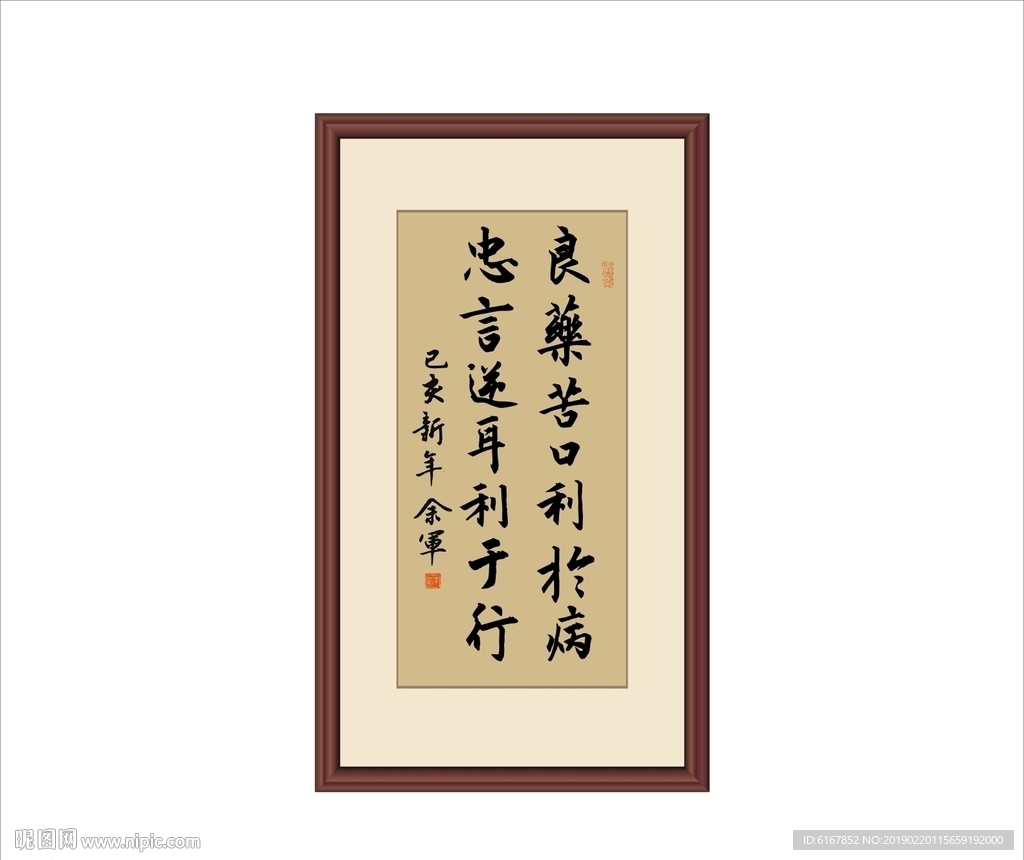 良藥苦口利於病
忠言逆耳利于行
己亥新年 余軍
昵图网 www.nipic.com
ID:6167852 NO:20190220115659192000